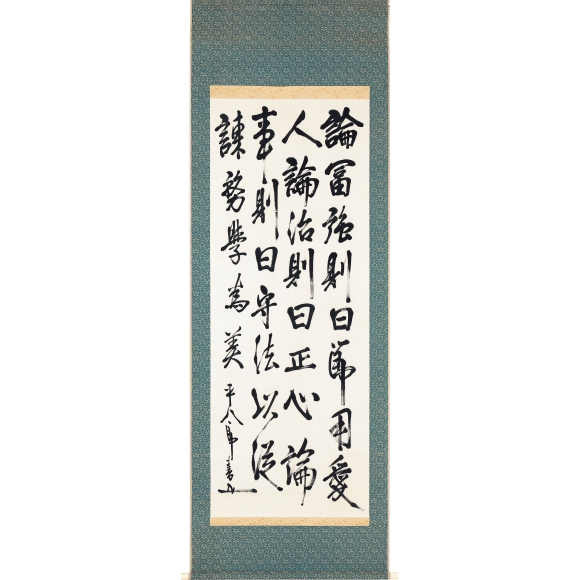 論冨強則曰節用愛
人論治則曰正心論
事則曰守法以從
諫務學為美 平八郎書